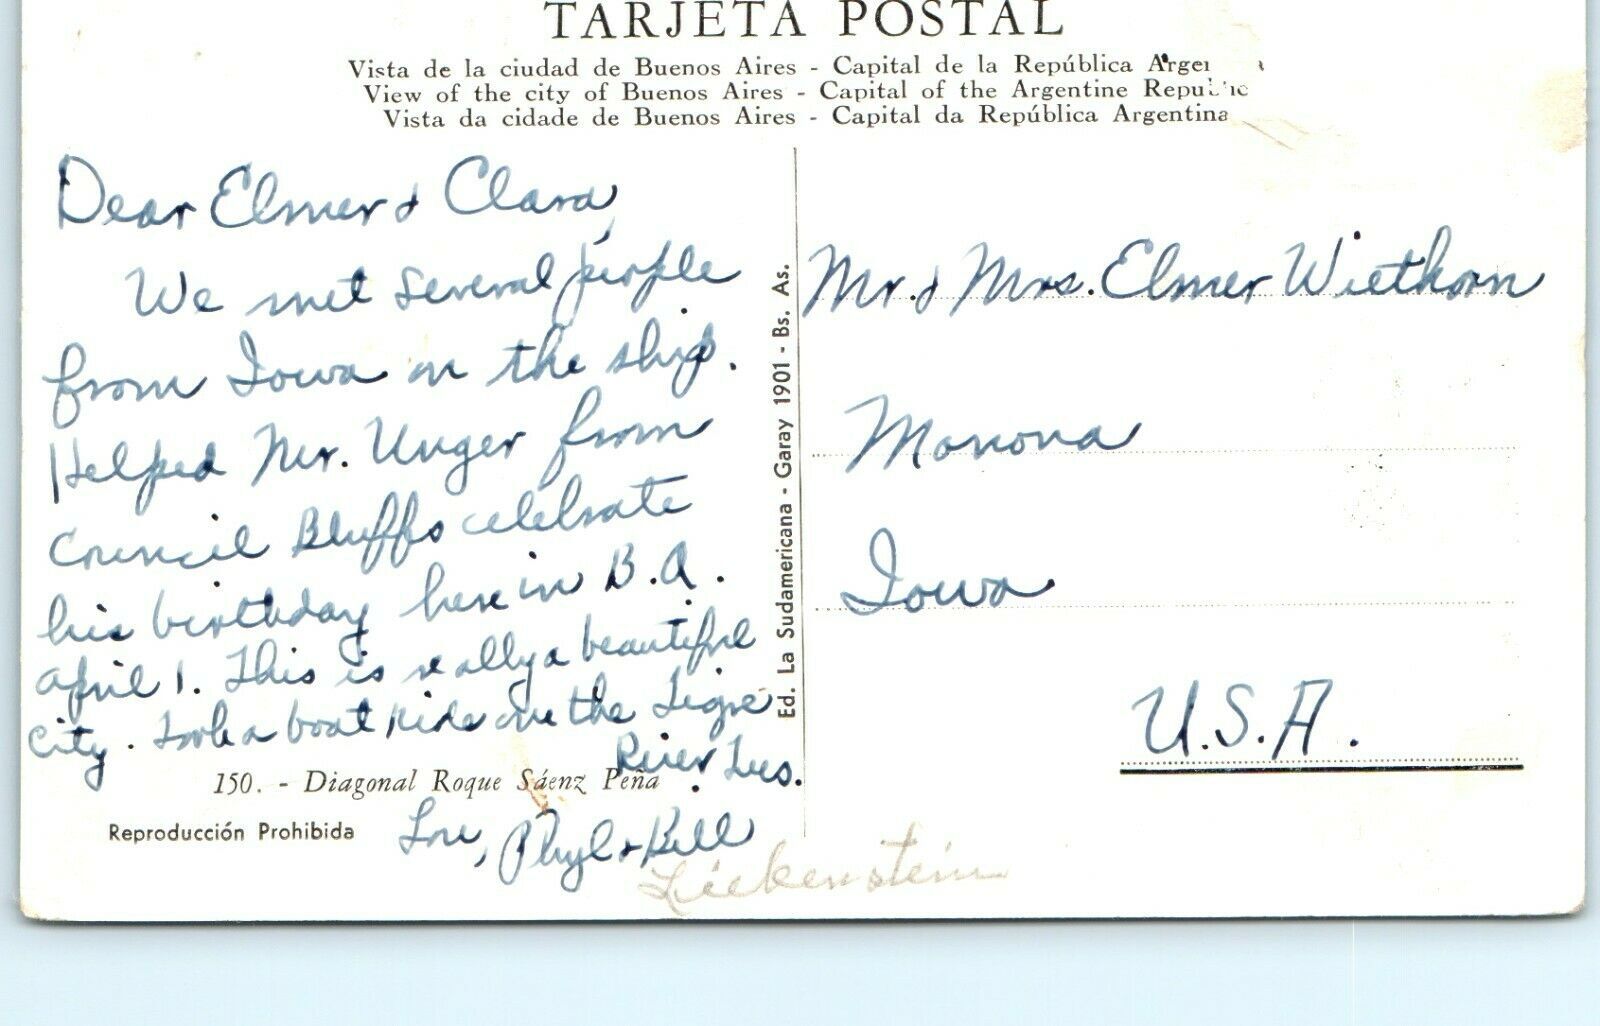 TARJETA POSTAL
Vista de la ciudad de Buenos Aires - Capital de la República Argen a
View of the city of Buenos Aires - Capital of the Argentine Republic
Vista da cidade de Buenos Aires - Capital da República Argentina
Dear Elmer & Clara,
We met several people
from Iowa on the ship.
Helped Mr. Unger from
Council Bluffs celebrate
his birthday here in B.A.
April 1. This is really a beautiful
city. Took a boat ride on the Tigre
River Tues.
150. - Diagonal Roque Sáenz Peña
Reproducción Prohibida
Love, Phyl & Bill
Liebenstein
Ed. La Sudamericana - Garay 1901 - Bs. As.
Mr. & Mrs. Elmer Wiethorn
Monona
Iowa
U.S.A.